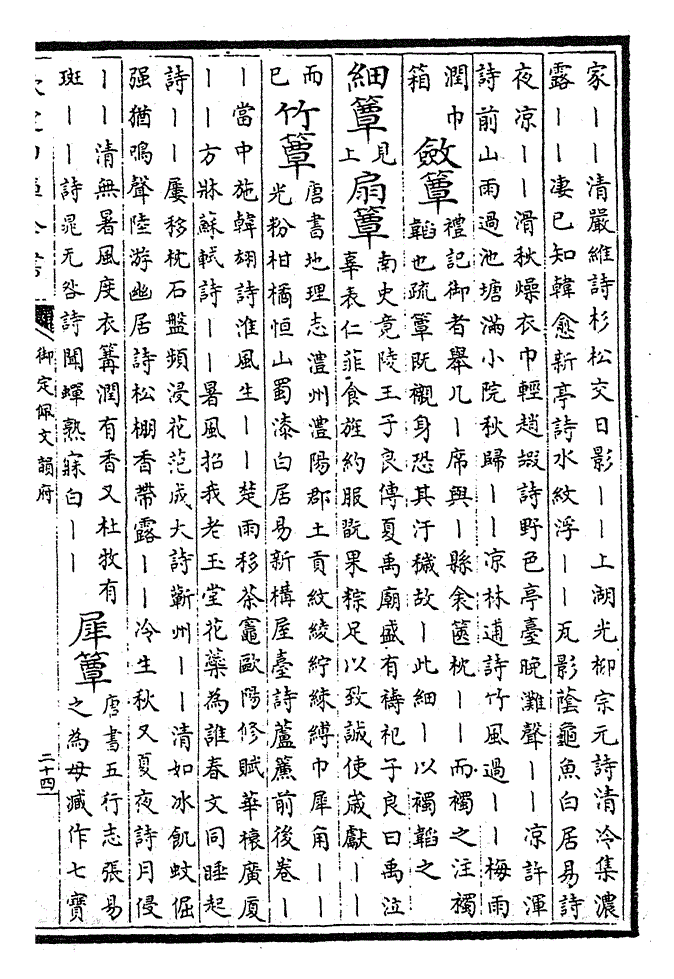 家丨丨清嚴維詩杉松交日影丨丨上湖光柳宗元詩清冷集濃
露丨丨凄已知韓愈新亭詩水紋浮丨丨瓦影蔭龜魚白居易詩
夜凉丨丨滑秋燥衣巾輕趙嘏詩野色亭臺晚灘聲丨丨凉許渾
詩前山雨過池塘滿小院秋歸丨丨凉林逋詩竹風過丨丨梅雨
潤巾
箱
斂簟
禮記御者舉几丨席與丨縣衾篋枕丨丨而襡之注襡
韜也疏簟既襯身恐其汙穢故丨此細丨以襡韜之
細簟
見
上
扇簟
南史竟陵王子良傳夏禹廟盛有禱祀子良曰禹泣
辜表仁菲食旌約服翫果粽足以致誠使歲獻丨丨
而
已
竹簟
唐書地理志澧州澧陽郡土貢紋綾紵綀縛巾犀角丨丨
光粉柑橘恒山蜀漆白居易新構屋臺詩蘆簾前後卷丨
丨當中施韓翃詩淮風生丨丨楚雨移茶竈歐陽修賦華榱廣厦
丨丨方牀蘇軾詩丨丨暑風招我老玉堂花藥為誰春文同睡起
詩丨丨屢移枕石盤頻浸花范成大詩蘄州丨丨清如冰飢蚊倔
强猶鳴聲陸游幽居詩松棚香帶露丨丨冷生秋又夏夜詩月侵
丨丨清無暑風度衣篝潤有香又杜牧有
斑丨丨詩晁元咎詩聞蟬熟寐白丨丨
犀簟
唐書五行志張易
之為母臧作七寳
御定佩文韻府
二十四